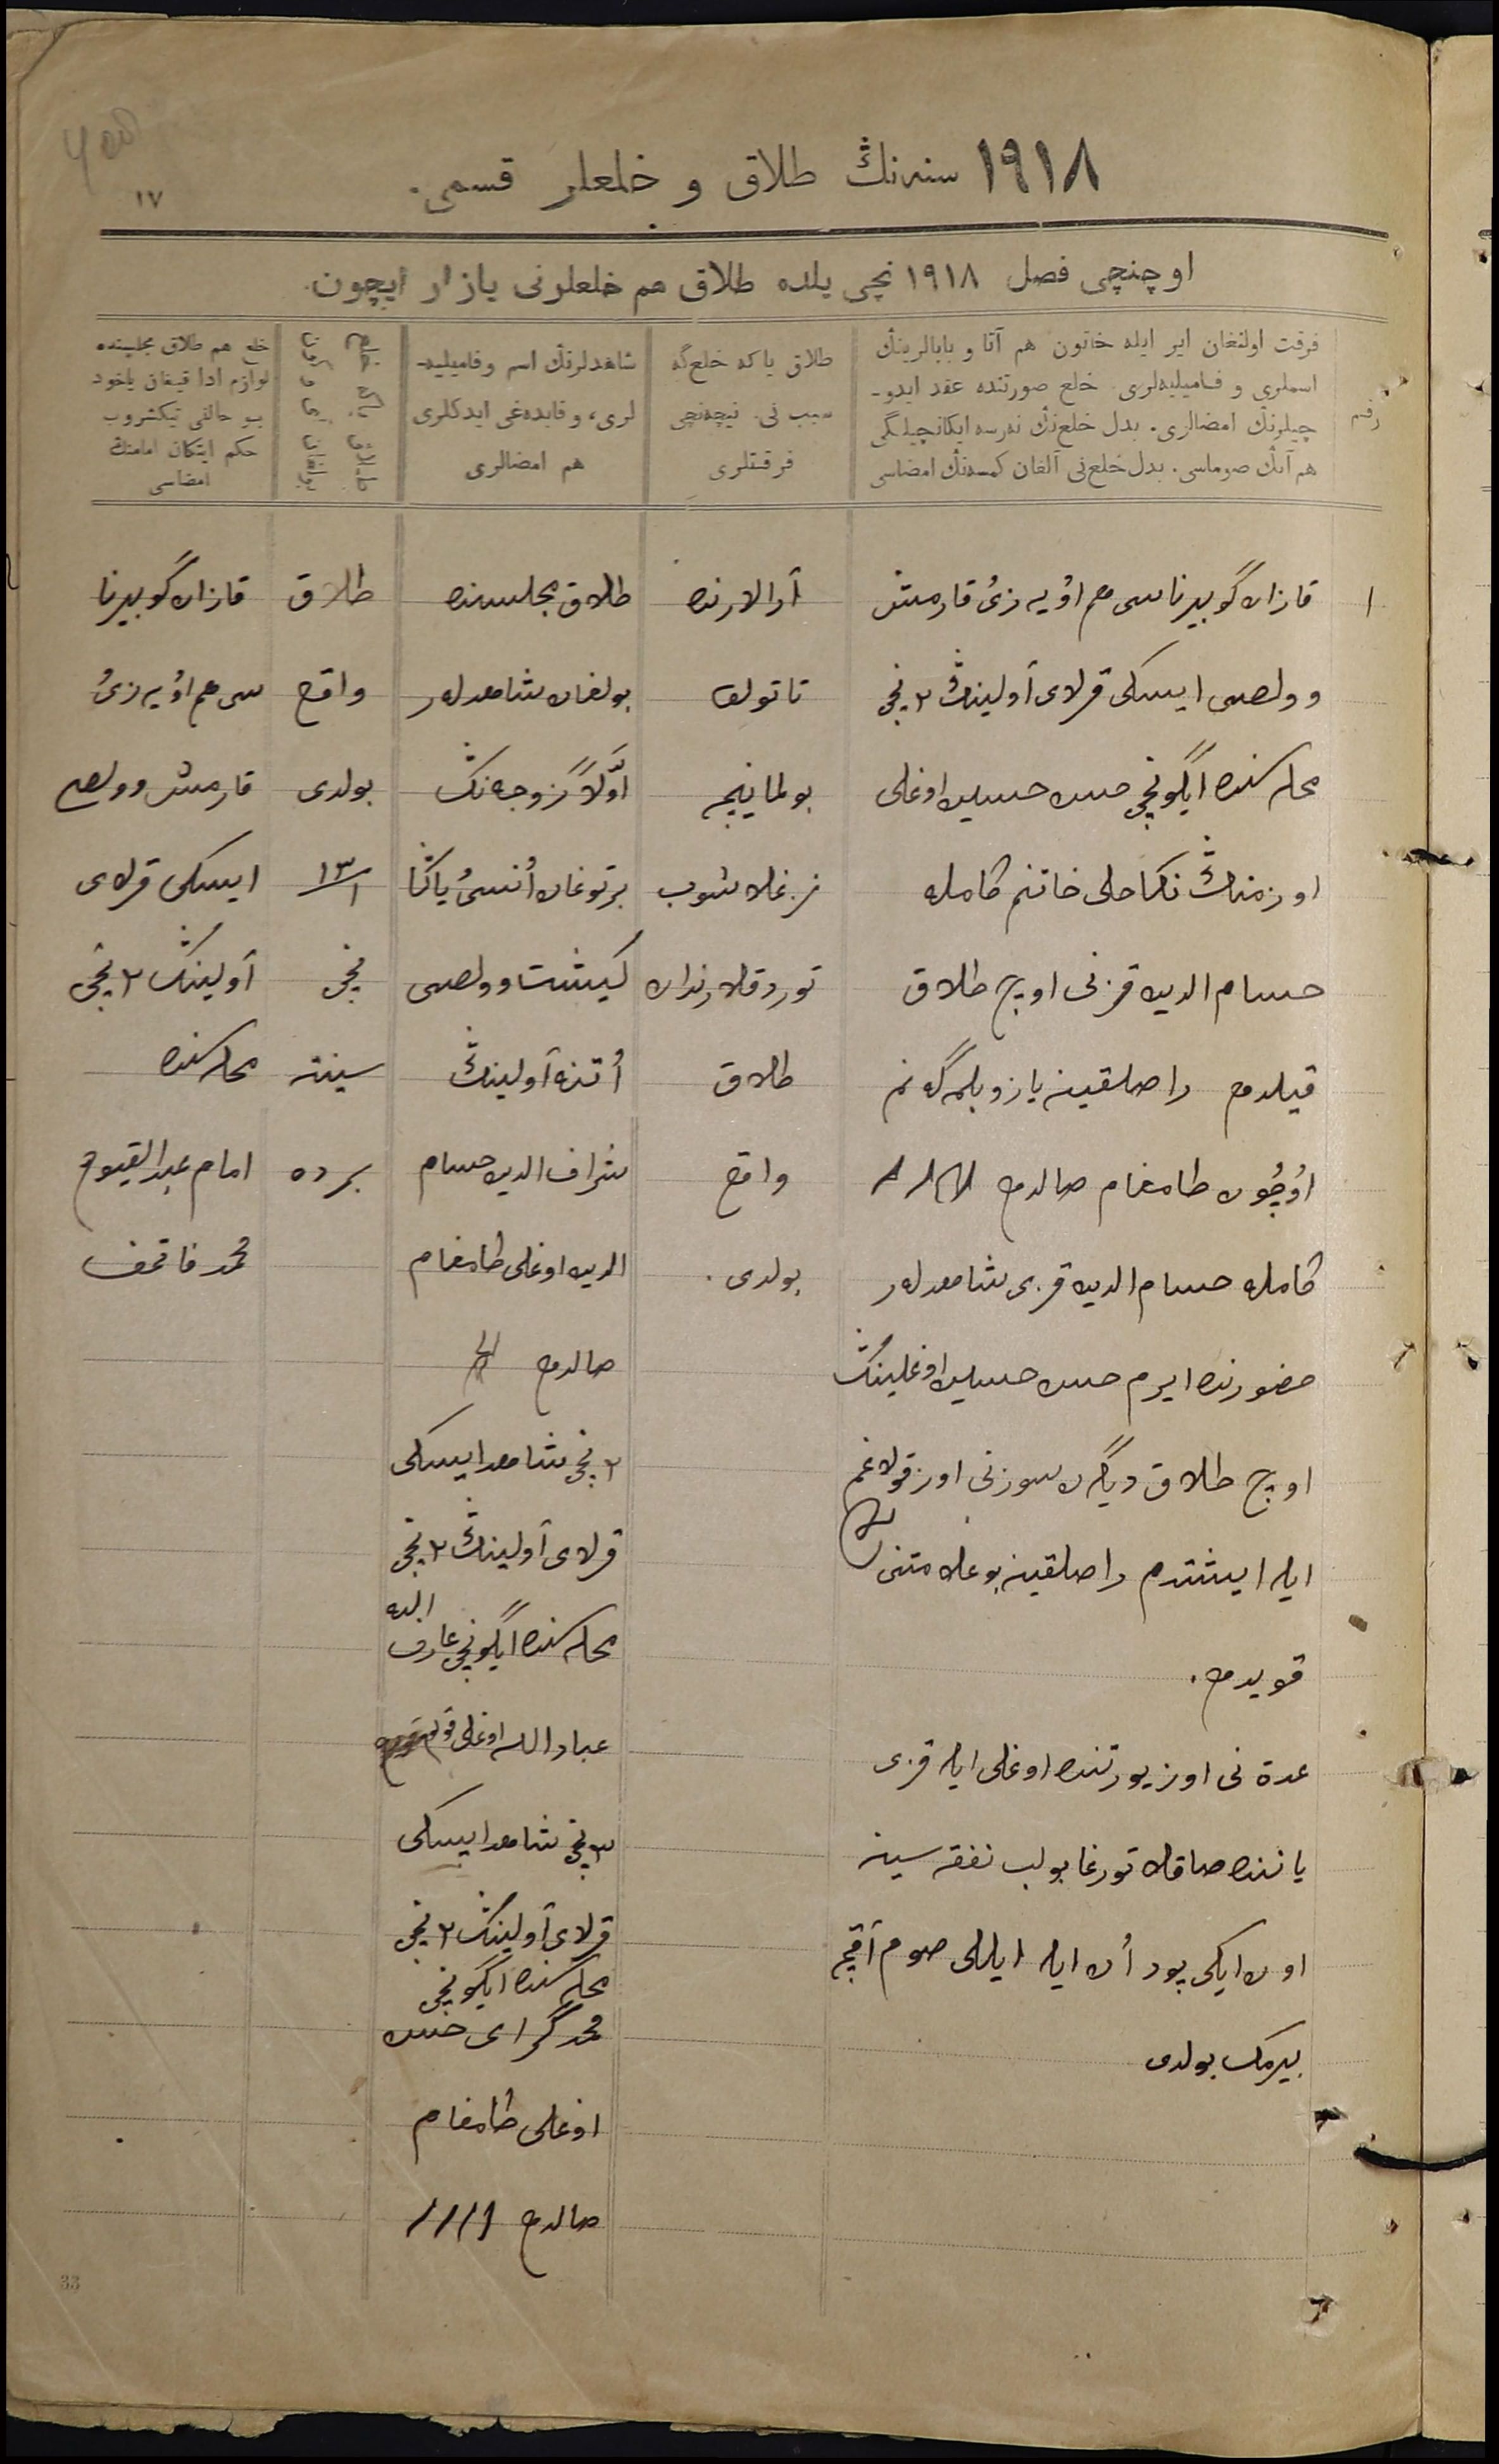 ۱۹۱۸ سنه‌نڭ طلاق و خلعلر قسمی.
۱۷
اوچنچی فصل ۱۹۱۸ نچی یلده طلاق هم خلعلرنی یازار ایچون.
رقم
فرقت اولنغان ایر ایله خاتون هم آتا و بابالرینڭ
اسملری و فامیلیه‌لری. خلع صورتنده عقد ایدو-
چیلرنڭ امضالری. بدل خلع‌نڭ نه‌رسه ایکانچیلگی
هم آنڭ صوماسی. بدل خلع‌نی آلغان کمسه‌نڭ امضاسی
طلاق یا که خلع‌گه
سبب نی. نیچه‌نچی
فرقتلری
شاهدلرنڭ اسم وفامیلیه-
لری، و قایده‌غی ایدکلری
هم امضالری
خلع هم طلاق مجلسنده
لوازم ادا قیغان یاخود
بو حالنی تیکشروب
حکم ایتکان امامنڭ
امضاسی
۱
قازان گوبیرناسی هم اۇیه‌زی قارمش
وولصی ایسکی قرلای آولینڭ ۲ نچی
محله‌سنده ایگونچی حسن حسین اوغلی
اوزمنڭ نکاحلی خاتنم کامله
حسام الدین قزنی اوچ طلاق
قیلدم راصلقینه یازو بلمه‌گه‌نم
اۇچۇن طامغام صالدم
کامله حسام الدین قزی شاهدلەر
حضورنده ایرم حسن حسین اوغلینڭ
اوچ طلاق دیگەن سوزنی اوز قولاغم
ایله ایشتدم راصلقینه بو علامتنی
قویدم.
عدة نی اوز یورتنده اوغلی ایله قزی
یاننده صاقلا تورغا بولب نفقه سینه
اون ایکی پود أن ایله ایللی صوم آقچه
بیرمک بولدی
آرالارنده
تاتولق
بولماینچه
زغلاشوب
توردقلارندان
طلاق
واقع
بولدی.
طلاق مجلسنده
بولغان شاهدلەر
اوّلاً زوجه‌نڭ
برتوغان أنسی یاڭا
کیشت وولصی
أتنه آولینڭ
شراف الدین حسام
الدین اوغلی طامغام
صالدم
۲ نچی شاهد ایسکی
قرلای آولینڭ ۲ نچی
محله‌سنده ایگونچی عارف
الله
عباد الله اوغلی
۳ نچی شاهد ایسکی
قرلای آولینڭ ۲ نچی
محله‌سنده ایگونچی
محمد گرای حسن
اوغلی طامغام
صالدم
طلاق
واقع
بولدی
۱۳/۱
نچی
سینته
برده
قازان گوبیرنا
سی هم اۇیه‌زی
قارمش وولصی
ایسکی قرلای
آولینڭ ۲ نچی
محله‌سنده
امام عبد القیوم
محمد فاتحف
33